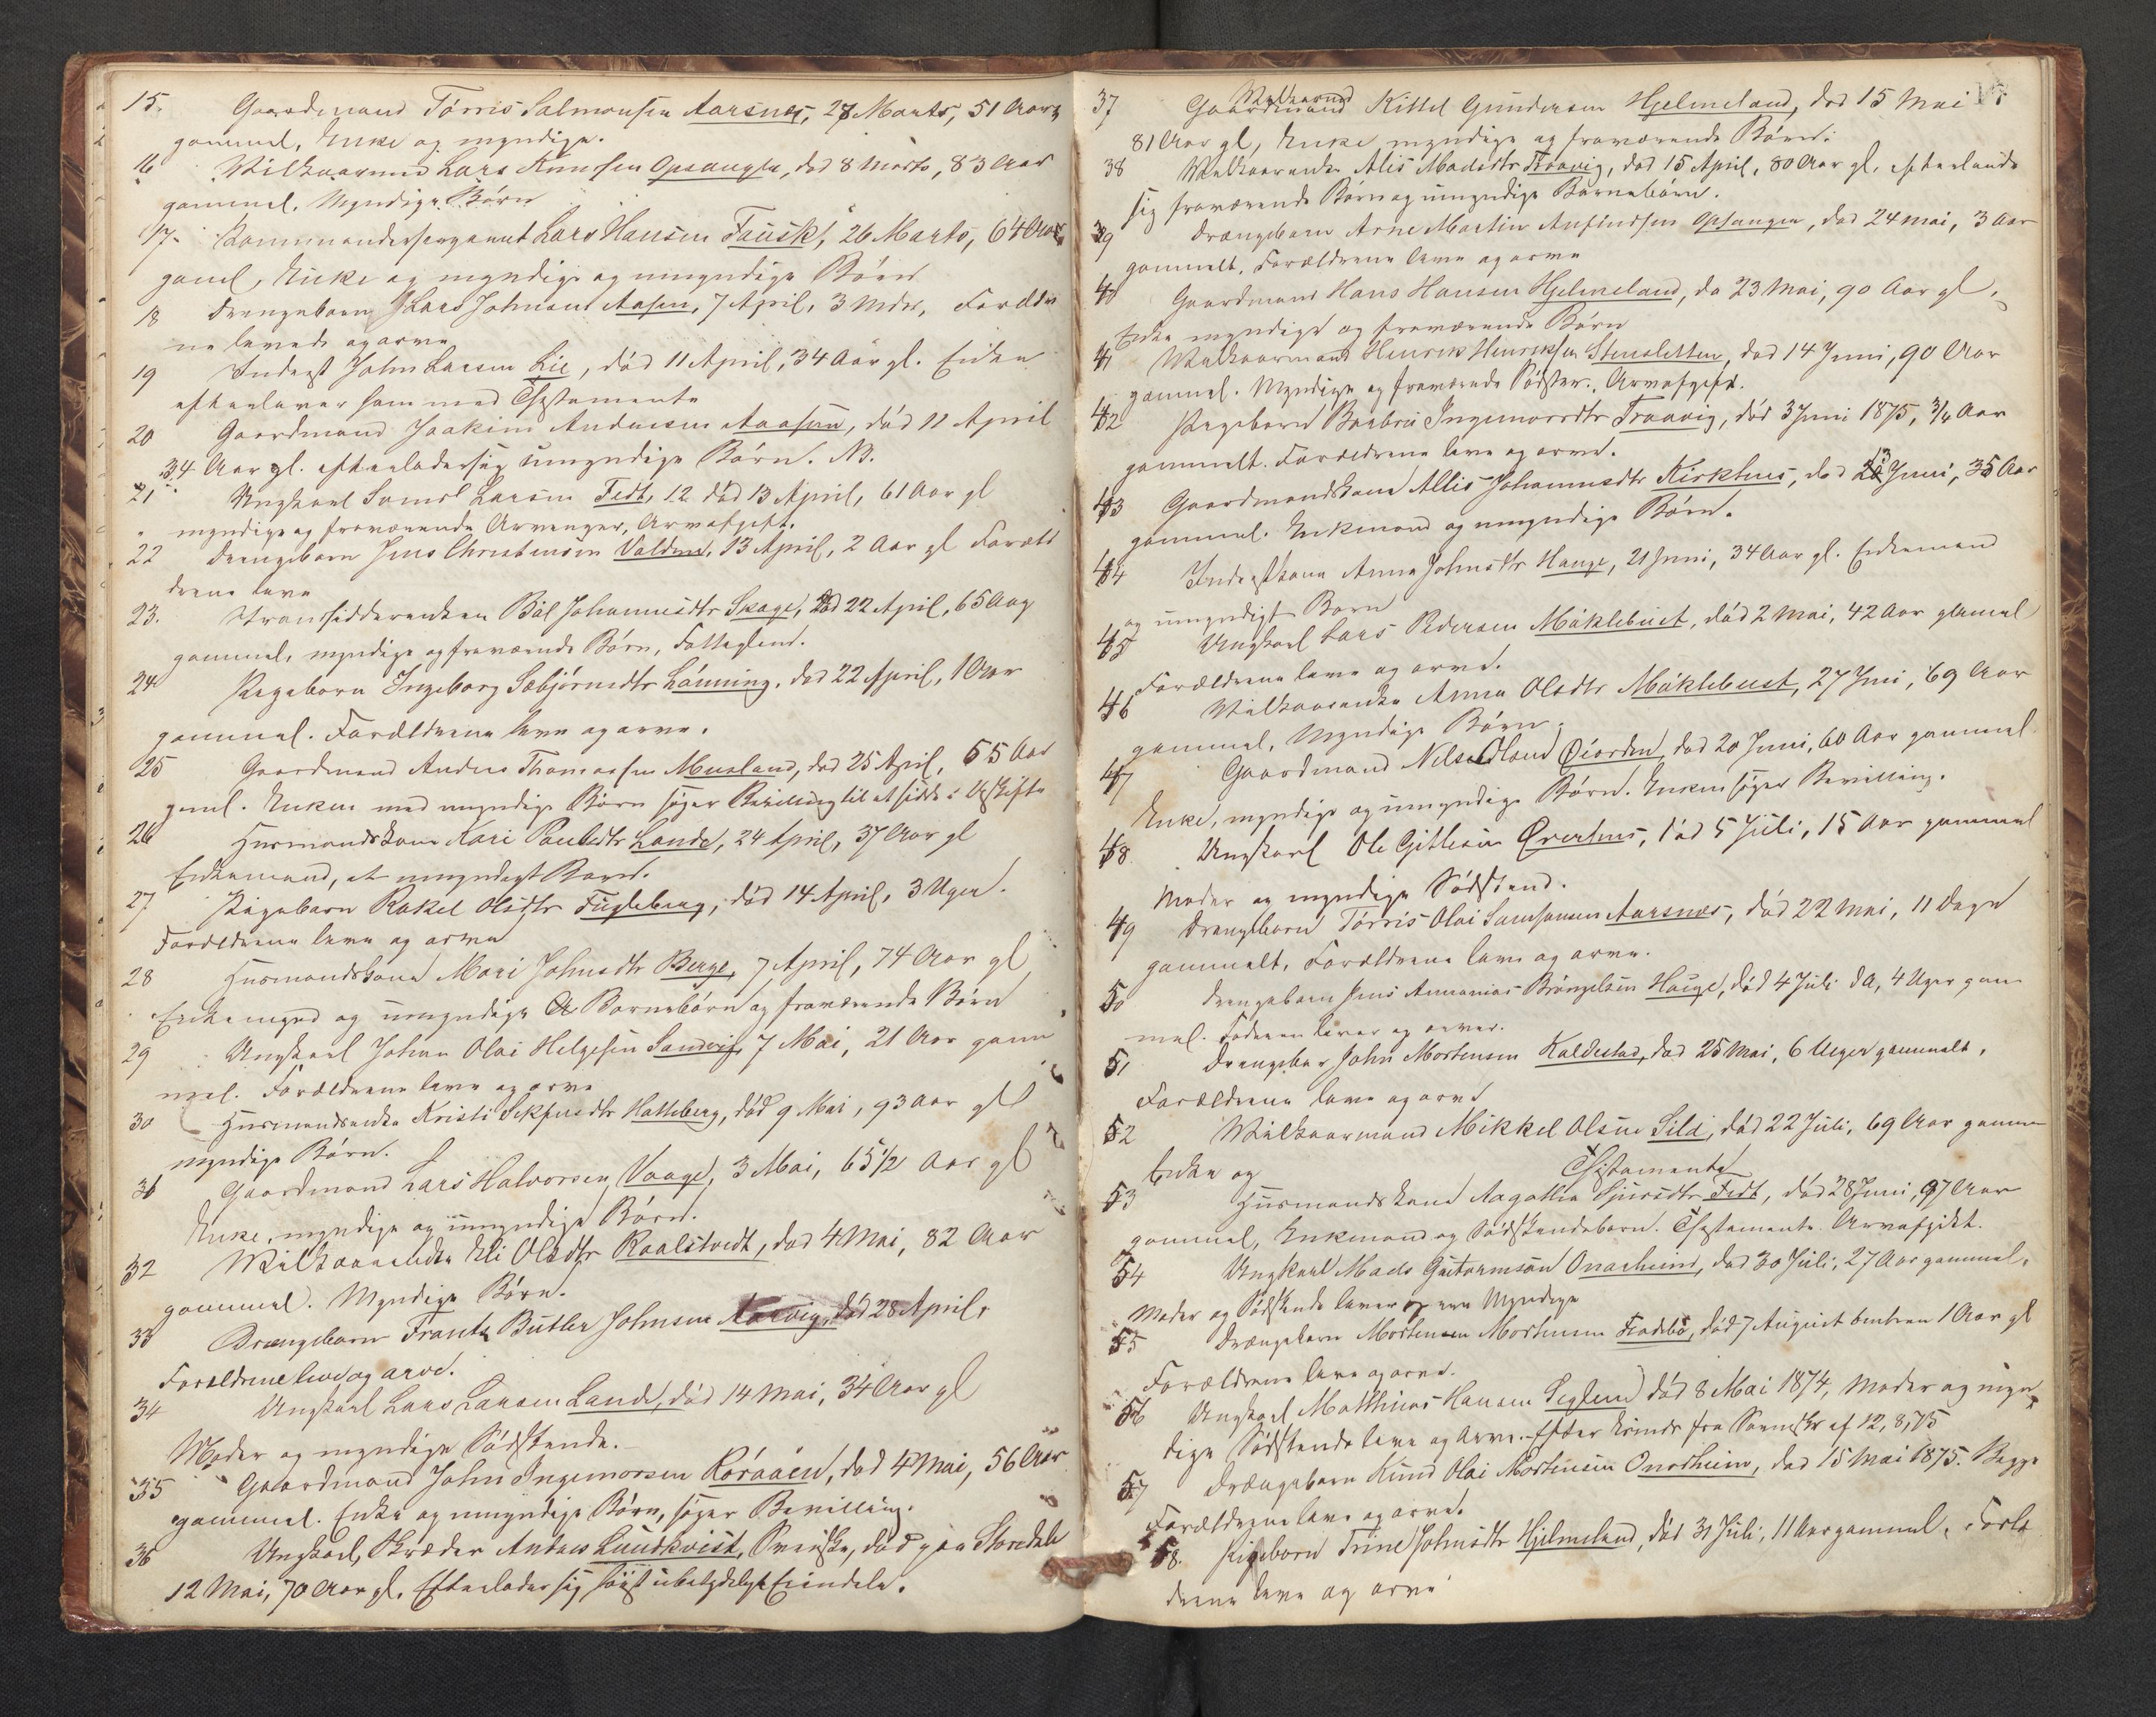 15. Gaardmand Tórris Salmonsen Aarsnes, 27 Marts, 51 Aar
gammel, Enke og myndige.
16 Vilkaarmand Lars Knutsen Opsangen, död 8 Marts, 83 Aar
gammel. Myndige Börn
17. Kommandersergeant Lars Hansen Fausk, 26 Marts, 64 Aar
gamel, Enke og myndige og umyndige Börn
18 Drengebarn Lars Johnsen Aasen, 7 April, 3 Mdr, Foreldre
ne levede og arve
19 Inderst John Larsen Lie, död 11 April, 34 Aar gl. Enken
efterlever ham med Testamente
20 Gaardmand Joakim Andersen Aaasen, död 11 April
34 Aar gl. efterladersig umyndige Börn. NB.
21 Ungkarl Samsl Larsen Tedt, 12 död 13 April, 61 Aar gl
myndige og fraværende Arvinger, Arveafgift.
22 Drengebarn Jens Christensen Valdem, 13 April, 2 Aar gl Foræl
drene leve
23. Strandsidderenken Böl Johannesdtr Skage, död 22 April, 65 Aar
gammel, myndige og fraværende Börn, Fatteglend.
24 Pigebarn Ingeborg Sæbjörnsdtr Lönning, död 22 April, 1 Aar
gammel. Forældrene leve og arve.
25 Gaardmand Anders Thomassen Musland, död 25 April, 55 Aar
gaml. Enken med umyndige Börn söger Bevilling til at sidde i Uskifte
26 Husmandskone Kari Paulsdtr Lande, 24 April, 37 Aar gl
Enkemand, et umyndigt Barn.
27 Pigebarn Rakel Olsdtr Fugleberg, död 14 April, 3 Uger.
Forældrene leve og arve
28 Husmandskone Mari Johnsdtr Berge, 7 April, 74 Aar gl
Enkemand og umyndige Barnebörn og fraværende Börn
29 Ungkarl Johan Olai Helgesen Sandvig, 7 Mai, 21 Aar gam
mel. Forældrene leve og arve
30 Husmandsenke Kristi Sekfusdtr Hatteberg, död 9 Mai, 93 Aar gl
myndige Börn.
31 Gaardmand Lars Halvorsen Vaage, 3 Mai, 65 1/2 Aar gl
Enke, myndige og umyndige Börn.
32 Vilkaarenke Eli Olsdtr Raalstvedt, död 4 Mai, 82 Aar
gammel. Myndige Börn.
33 Drengebarn Frantz Butler Johnsen Aarvig, död 28 April,
Foreldrene leve og arve.
34 Ungkarl Lars Larsen Lande, död 14 Mai, 34 Aar gl
Moder og myndige Södskende.
35 Gaardmand John Ingemorsen Röraaen, död 4 Mai, 56 Aar
gammel. Enke og umyndige Börn, söger Bevilling.
36 Ungkarl, Skræder Anders Lundkvist, Svenske, död paa Storedale
12 Mai, 70 Aar gl. Efterlader sig höist ubetydelige Eiendele.
37 Vilkaarmd
Gaardmand Kittel Gundersen Hjelmeland, död 15 Mai
81 Aar gl, Enke myndige og fraværende Börn.
38 Vilkaarenke Alis Madsdtr Traavig, död 15 April, 80 Aar gl, efterlader
sig fraværende Börn og umyndige Barnebörn.
39 Drengebarn Arne Martin Anfindsen Opsangen, död 24 Mai, 3 Aar
gammelt. Forældrene leve og arve
40 Gaardmand Hans Hansen Hjelmeland, dö 23 Mai, 90 Aar gl,
Enke myndige og fraværende Börn
41 Vilkaarmand Henrik Henriksen Stensletten, död 14 Juni, 90 Aar
gammel. Myndige og fraværende Södsken. Arveafgift.
42 Pigebarn Barbru Ingemorsdtr Traavig, död 3 Juni 1875, 3/4 Aar
gammelt. Foreldrene leve og arve.
43 Gaardmandskone Allis Johannesdtr Kirkhus, död 13 Juni, 35 Aar
gammel. Enkemand og umyndige Börn.
44 Inderstkone Anna Johnsdtr Hauge, 21 Juni, 34 Aar gl. Enkemand
og umyndigt Barn
45 Ungkarl Lars Pedersen Möklebust, död 2 Mai, 42 Aar glamel
Forældrene leve og arve.
46 Vilkaarenke Anna Olsdtr Möklebust, 27 Juni, 69 Aar
gammel, Myndige Börn.
47 Gaardmand Nils Olsen Öiorden, död 20 Juni, 60 Aar gammel
Enke, myndige og umyndige Börn. Enken söger Bevilling.
48. Ungkarl Ole Gitlesen Överhus, död 5 Juli, 15 Aar gammel
Moder og myndige Södskend.
49 Drengebarn Törris Olai Samsonsen Aarsnes, död 22 Mai, 11 Dage
gammelt, Forældrene leve og arve.
50 Drengebarn Jens Annanias Bröngelsen Hauge, död 4 Juli dA, 4 Uger gam
mel. Faderen lever og arver.
51 Drengebar John Mortensen Kaldestad, död 25 Mai, 6 Uger gammelt.
Forældrene leve og arve
52 Vilkaarmand Mikkel Olsen Sild, död 22 Juli, 69 Aar gamme
Enke og Testamente
53 Husmandskone Aagatha Sjursdtr Tedt, död 28 Juni, 97 Aar
gammel, Enkemand og Södskendebarn. Testamente. Arveafgift.
54 Ungkarl Mads Guttormsen Onarheim, död 30 Juli, 27 Aar gammel.
Moder og Södskende lever og ere Myndige
55 Drengebarn Mortensen Mortensen Fladebö, död 7 August omtren 1 Aar gl
Forældrene leve og arve.
56 Ungkarl Matthias Hansen Teglens död 8 Mai 1874, Moder og myn
dige Södskende leve og arve. Efter Erindr fra Sorenskr af 12,8,75
57 Drengebarn Knud Olai Mortensen Onarheim, död 15 Mai 1875. Begge
Forældrene leve og arve.
58. Pigebarn Trine Johnsdtr Hjelmeland, död 31 Juli, 11 Aar gammel. Foræl
drene leve og arve